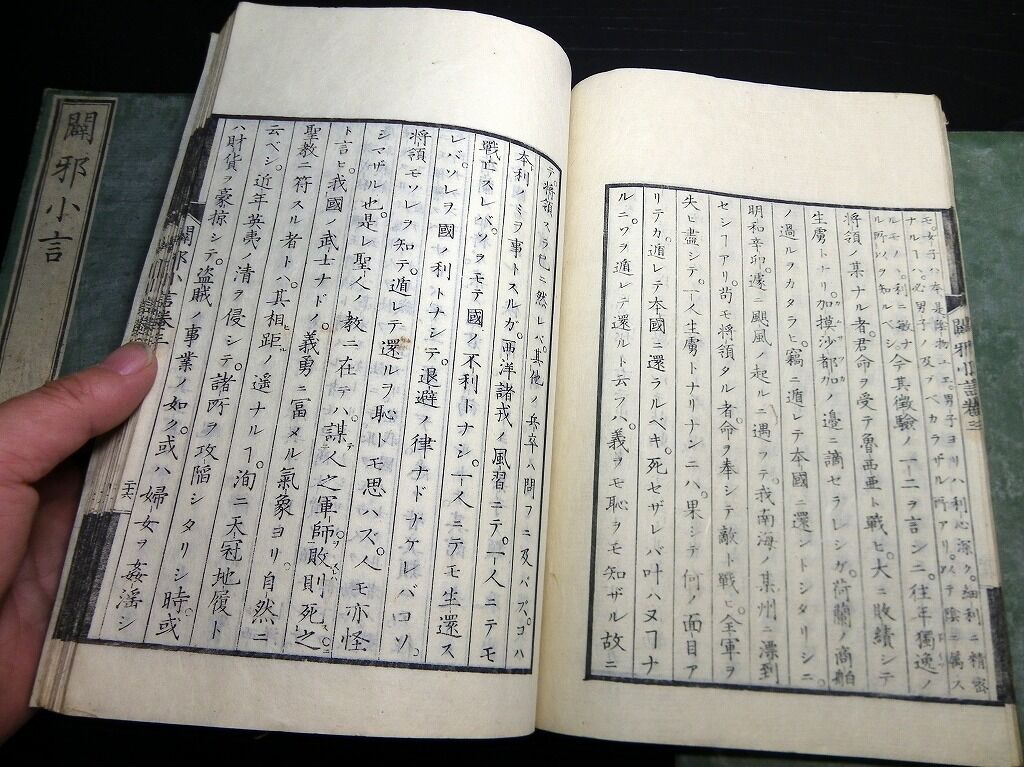 闢邪小言
闢邪小言巻三
モ。女子ハ本是陰物ユヱ。男子ヨリハ利心深ク。細利ニ精密
ナル
ルモノ。利ニ敏ナ
将領ノ某ナル者。君命ヲ受テ魯西亜ト戦ヒ。大ニ敗績シテ
生虜トナリ。加摸沙都加ノ辺ニ謫セラレシガ。荷蘭ノ商舶
ノ過ルヲカタラヒ。竊ニ遁レテ本國ニ還ントシタリシニ。
明和辛卯。遽ニ颶風ノ起ルニ遇フテ。我南海ノ某州ニ漂到
セシヿアリ。苟モ将領タル者。命ヲ奉シテ敵ト戦ヒ。全軍ヲ
失ヒ盡シテ。一人生虜トナリナンニハ。果シテ何ノ面目ア
リテカ。遁レテ本國ニ還ラルベキ。死セザレバ叶ハヌヿナ
ルニ。ワヲ遁レテ還ルト云フハ。義ヲモ恥ヲモ知ザル故ニ
テ。将領スラ已ニ然レバ。其他ノ兵卒ハ問フニ及バズ。コハ
本利ノミヲ事トスルガ。西洋諸戎ノ風習ニテ。一人ニテモ
戦亡スレバ。ソヲモテ國ノ不利トナシ。一人ニテモ生還ス
レバ。ソレヲ國ノ利トナシテ。退避ノ律ナドナケレバコソ。
将領モソレヲ知テ。遁レテ還ルヲ恥トモ思ハズ。人モ亦怪
シマザル也。是レ聖人ノ教ニ在テハ。謀人之軍師。敗則死之
ト言ヒ。我國武士ナドノ。義勇ニ富メル氣象ヨリ。自然ニ
聖教ニ符スル者トハ。其相距ノ遙ナルヿ。洵ニ天冠地履ト
云ベシ。近年英夷ノ清ヲ侵シテ。諸所ヲ攻陥シタリシ時。或
ハ財貨ヲ豪掠シテ。盗賊ノ事業ノ如ク。或ハ婦女ヲ姦淫シ